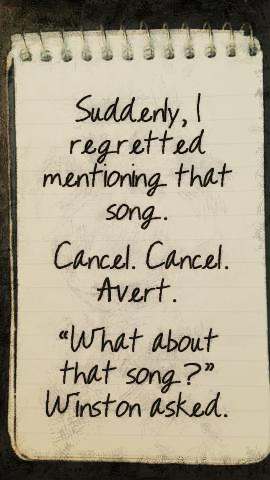 Suddenly, I
regretted
mentioning that
song.
Cancel. Cancel.
Avert.
“What about
that song?”
Winston asked.